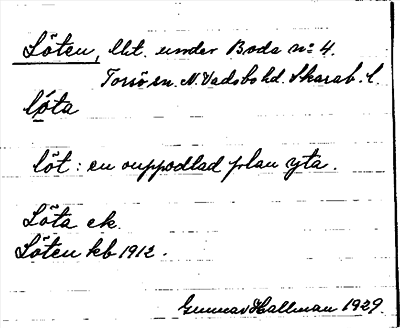 Löten, lht. under Boda nº 4.
Torsö sn. N. Vadsbo hd. Skarab. l.
lö̀ta
löt: en ouppodlad plan yta.
Löta ek.
Löten kb 1912.
Gunnar Hallman 1929.